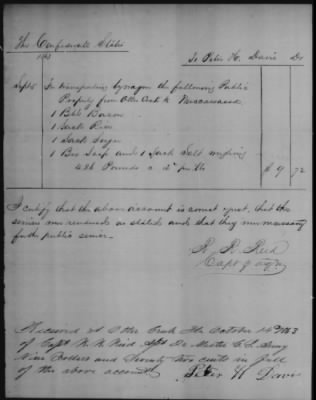 The Confederate States
1863 To Peter H. Davis Dr
Sept 5 For transporting by wagon the following Public
Property from Otter Creek to
1 Bbls Bacon
1 Sack Rice
1 Sack Sugar
1 Box Soap and 1 Sack Salt weighing
486 Pounds @ 2¢ per lb $ 9 72
I certify that the above account is correct & just, that the
service was rendered as stated and that they were necessary
for the public service.
R. R. Reid
Capt & aqm
Received at Otter Creek Fla October 14th 1863
of Capt R. R. Reid Asst Qr Master C. S. Army
Nine Dollars and Seventy two cents in full
of the above account
Peter H Davis